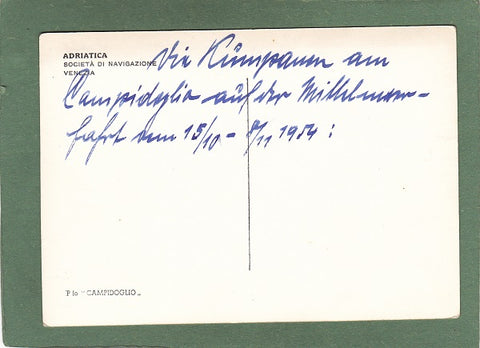 ADRIATICA
SOCIETÀ DI NAVIGAZIONE
VENEZIA
Die Kumpanen am
Campidoglio auf der Mittelmeer-
fahrt vom 15/10 - 8/11 1954 :
P.fo "CAMPIDOGLIO"